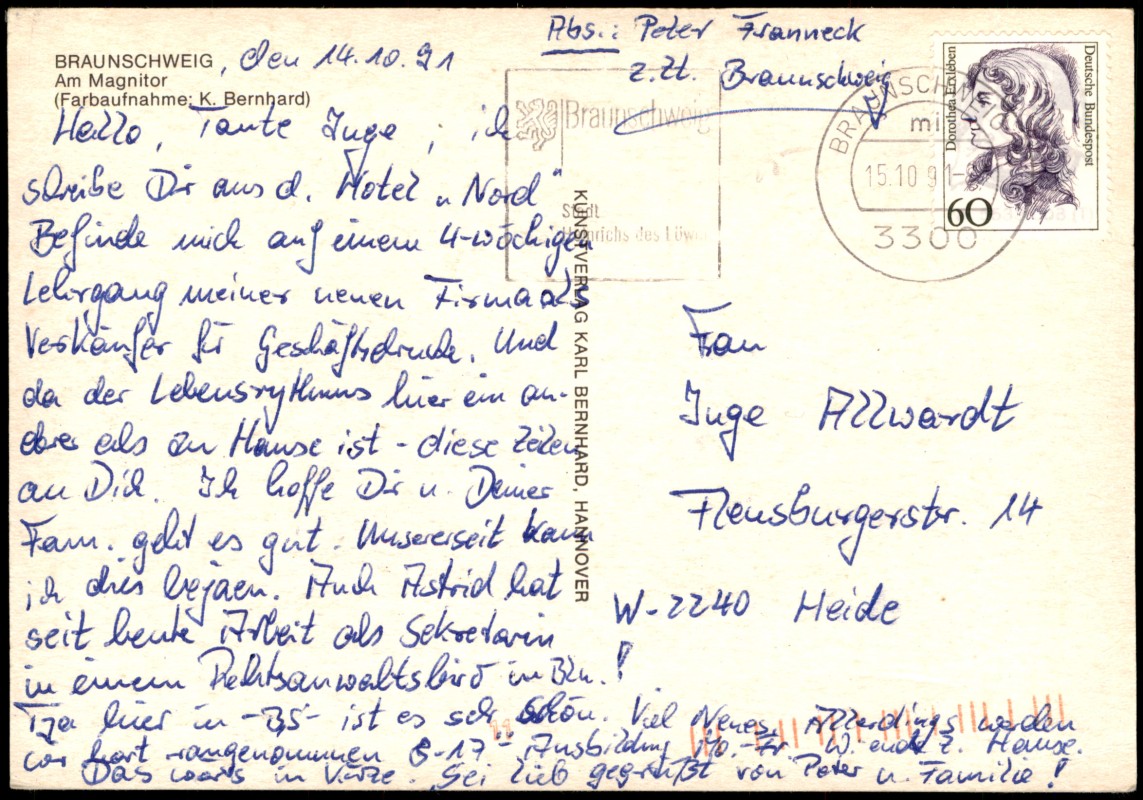 BRAUNSCHWEIG, den 14.10.91
Am Magnitor
(Farbaufnahme: K. Bernhard)
Hallo, Tante Inge, ich
schreibe Dir aus d. Hotel "Nord"
Befinde mich auf einem 4-wöchigen
Lehrgang meiner neuen Firma als
Verkäufer für Geschäftsdrucke. Und
da der Lebensrythmus hier ein an-
derer als zu Hause ist - diese Zeilen
an Dich. Ich hoffe Dir u. Deiner
Fam. geht es gut. Unsererseit kann
ich dies bejaen. Auch Astrid hat
seit heute Arbeit als Sekretärin
in einem Rechtsanwaltsbüro in Bln.!
Tja hier in -BS- ist es sehr schön. Viel Neues, Allerdings werden
wir hart rangenommen 8-17°° Ausbildung Mo.-Fr W.ende z. Hause.
Das wars in Kürze. Sei lieb gegrüßt von Peter u. Familie!
KUNSTVERLAG KARL BERNHARD, HANNOVER
Abs.: Peter Franneck
z.Zt. Braunschweig
Braunschweig
Stadt
Heinrichs des Löwen
BRAUNSCHW
15.10.91-
3300
Dorothea Erxleben
Deutsche Bundespost
60
Frau
Inge Allwardt
Flensburgerstr. 14
W-2240 Heide